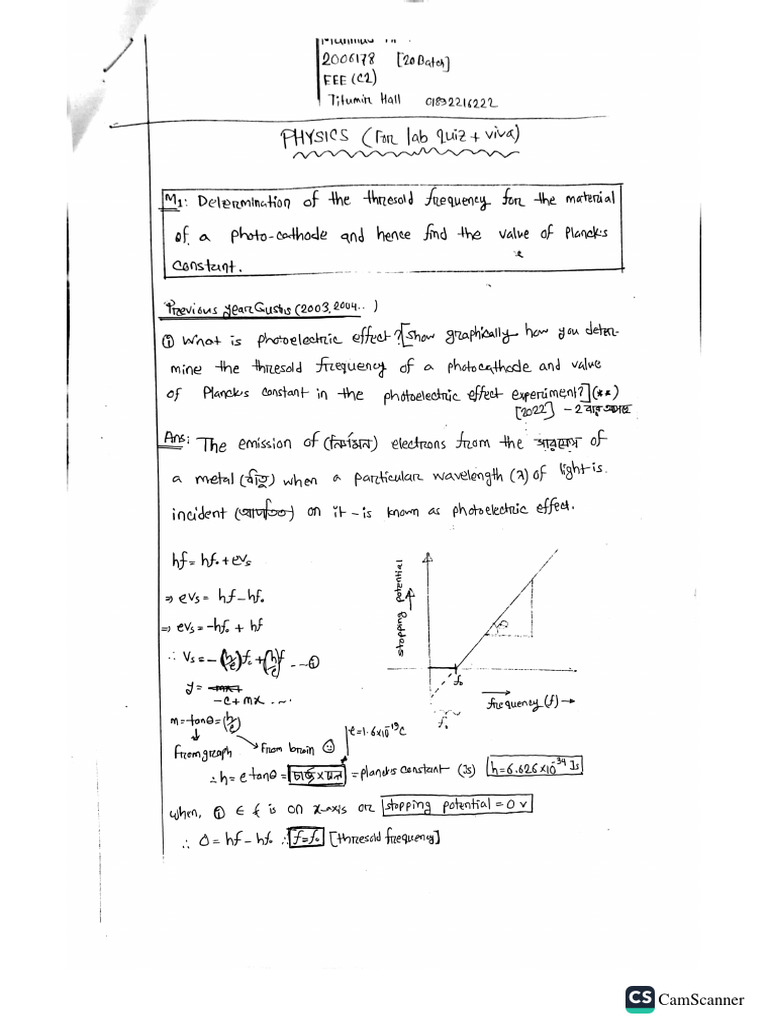 2006178 [20 Batch]
EEE (C2)
Titumir Hall 01832216222
PHYSICS (for lab quiz + viva)
M1: Determination of the thresold frequency for the material
of a photo-cathode and hence find the value of Planck's
constant.
Previous year (2003, 2004..)
① What is photoelectric effect? [Show graphically how you deter-
mine the thresold frequency of a photocathode and value
of Planck's constant in the photoelectric effect experiment?] (**)
[2022] - 2 বার
Ans: The emission of (নির্গমন) electrons from the of
a metal (ধাতু) when a particular wavelength (λ) of light is
incident (আপতিত) on it - is known as photoelectric effect.
hf = hf₀ + eVs
⇒ eVs = hf - hf₀
⇒ eVs = -hf₀ + hf
∴ Vs = -(h/e)f₀ + (h/e)f ...①
y =
-c + mx ...
m = tanθ = (h/e)
From graph
From brain
e = 1.6x10⁻¹⁹C
stopping potential
f₀
frequency (f) →
f₀
∴ h = e tanθ = = planck's constant (Js) h = 6.626x10⁻³⁴ Js
when, ① f is on x-axis or stopping potential = 0 v
∴ 0 = hf - hf₀ ∴ f = f₀ [thresold frequency]
CS CamScanner